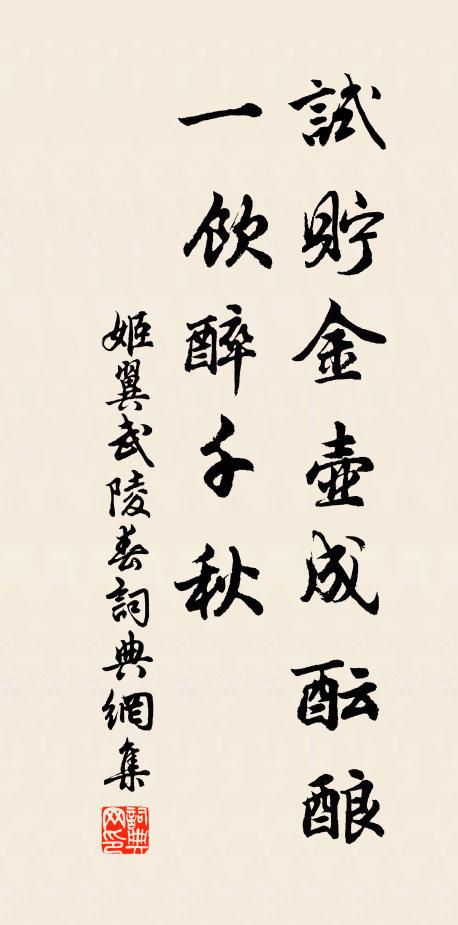 試貯金壺成酝酿
一飲醉千秋
姬翼武陵春詞典網集
詞典网印